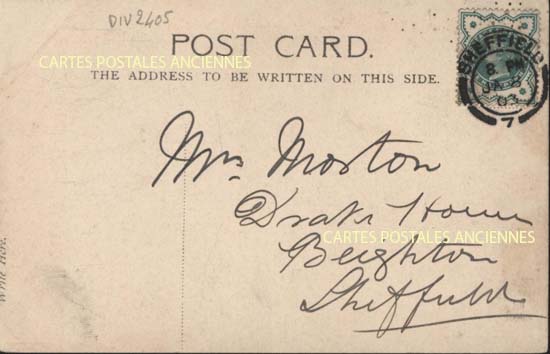 DIV2405
POST CARD.
CARTES POSTALES ANCIENNES
THE ADDRESS TO BE WRITTEN ON THIS SIDE.
SHEFFIELD
8. PM
JA
03
7
Mrs Morton
Drake House
CARTES POSTALES ANCIENNES
Beighton
Sheffield
Write Here.